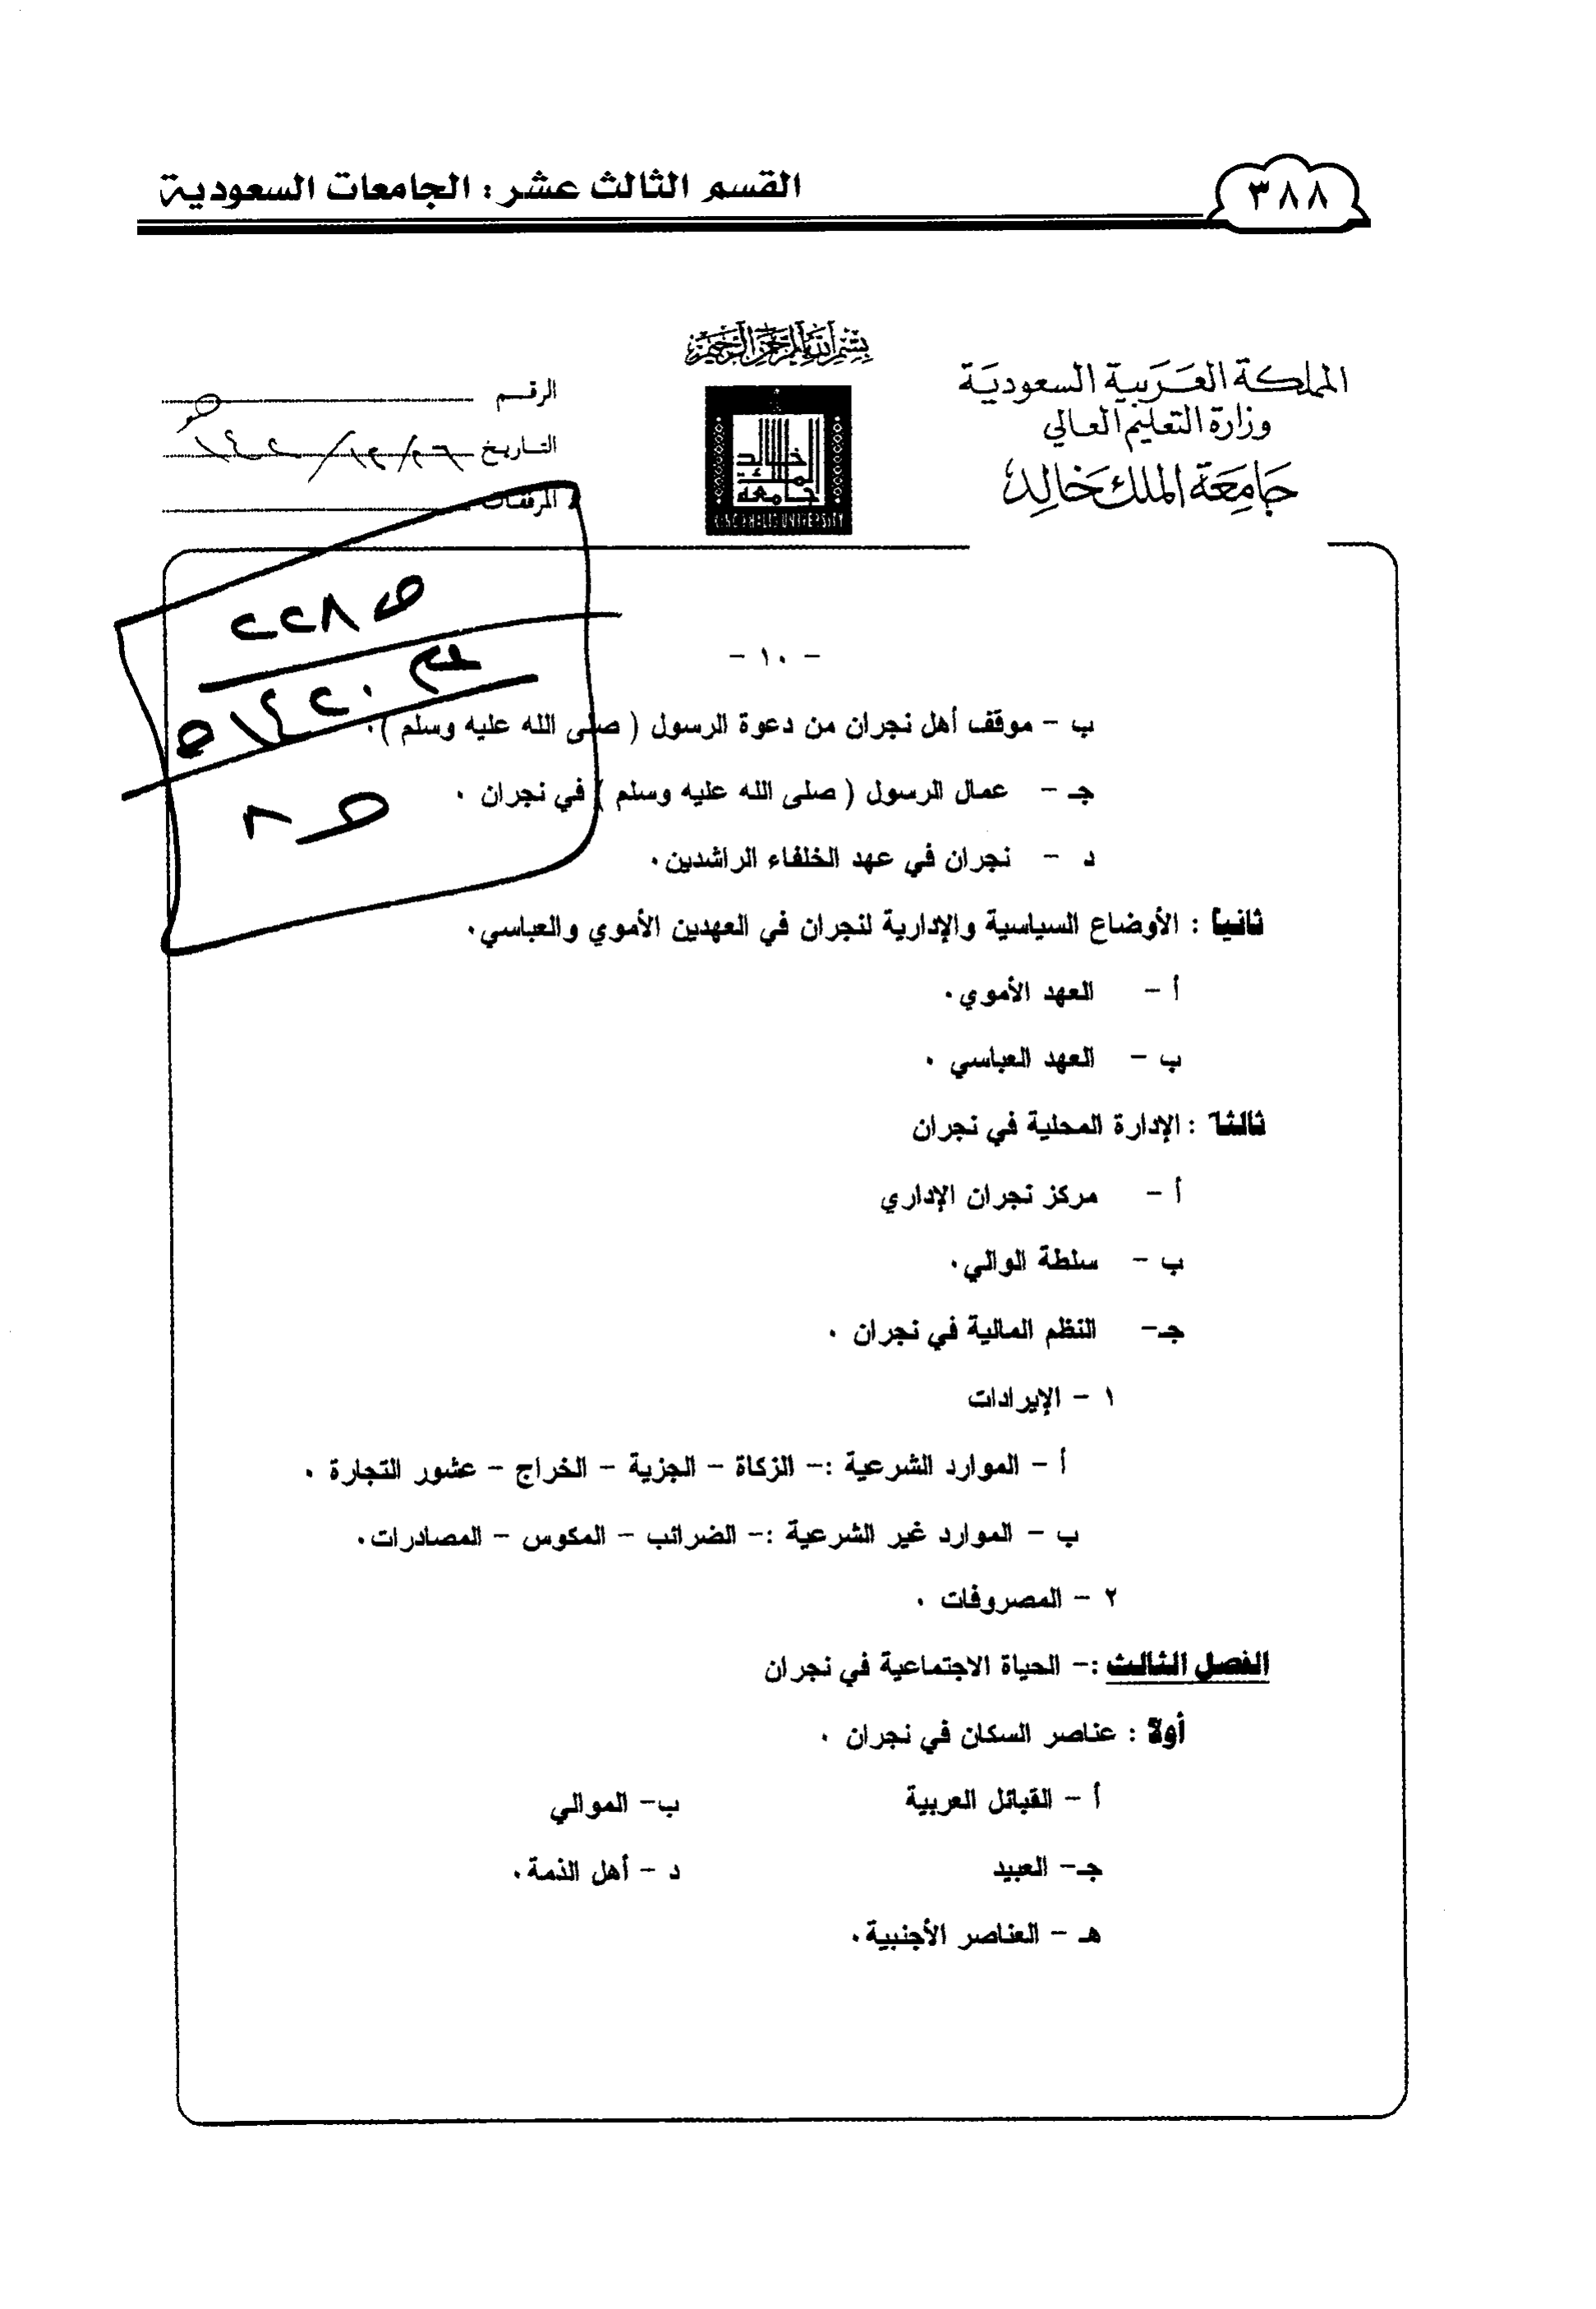 ٣٨٨
القسم الثالث عشر: الجامعات السعودية
بسم الله الرحمن الرحيم
المملكة العربية السعودية
وزارة التعليم العالي
جامعة الملك خالد
الرقم
التاريخ
المرفقات
جامعة الملك خالد
KING KHALID UNIVERSITY
ص ٢٢٨
ص ٨
- ١٠ -
ب - موقف أهل نجران من دعوة الرسول ( صلى الله عليه وسلم ).
جـ - عمال الرسول ( صلى الله عليه وسلم ) في نجران .
د - نجران في عهد الخلفاء الراشدين.
ثانياً : الأوضاع السياسية والإدارية لنجران في العهدين الأموي والعباسي.
أ - العهد الأموي.
ب - العهد العباسي .
ثالثا : الإدارة المحلية في نجران
أ - مركز نجران الإداري
ب - سلطة الوالي.
جـ- النظم المالية في نجران .
١ - الإيرادات
أ - الموارد الشرعية :- الزكاة - الجزية - الخراج - عشور التجارة .
ب - الموارد غير الشرعية :- الضرائب - المكوس - المصادرات.
٢ - المصروفات .
الفصل الثالث :- الحياة الاجتماعية في نجران
أولاً : عناصر السكان في نجران .
أ - القبائل العربية ب- الموالي
جـ- العبيد د - أهل الذمة.
هـ - العناصر الأجنبية.